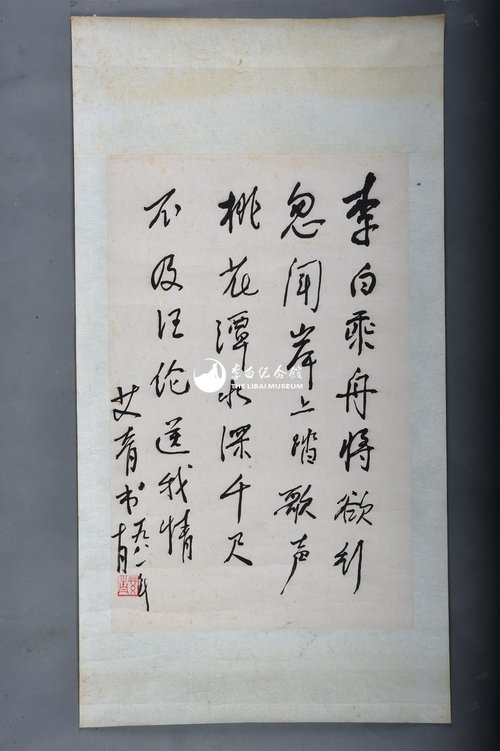 李白乘舟将欲行
忽闻岸上踏歌声
桃花潭水深千尺
不及汪伦送我情
艾青书
一九八一年
十月
李白纪念馆
THE LIBAI MUSEUM